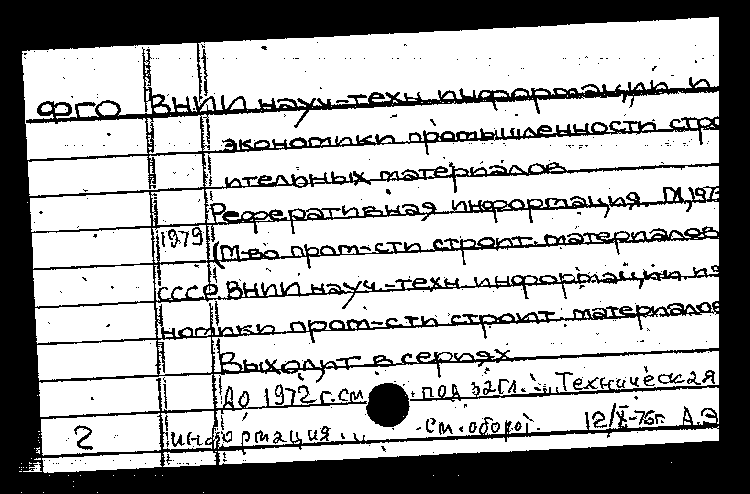 ФГО ВНИИ науч-техн информации и
экономики промышленности стро
ительных материалов
Реферативная информация М, 197
1979 (М-во пром-сти строит. материалов
СССР ВНИИ науч.-техн информации и э
номики пром-сти строит. материалов
Выходит в сериях
До 1972 г. см. под загл. „Техническая
2 информация" см. оборот. 12/X-76г. А.Э